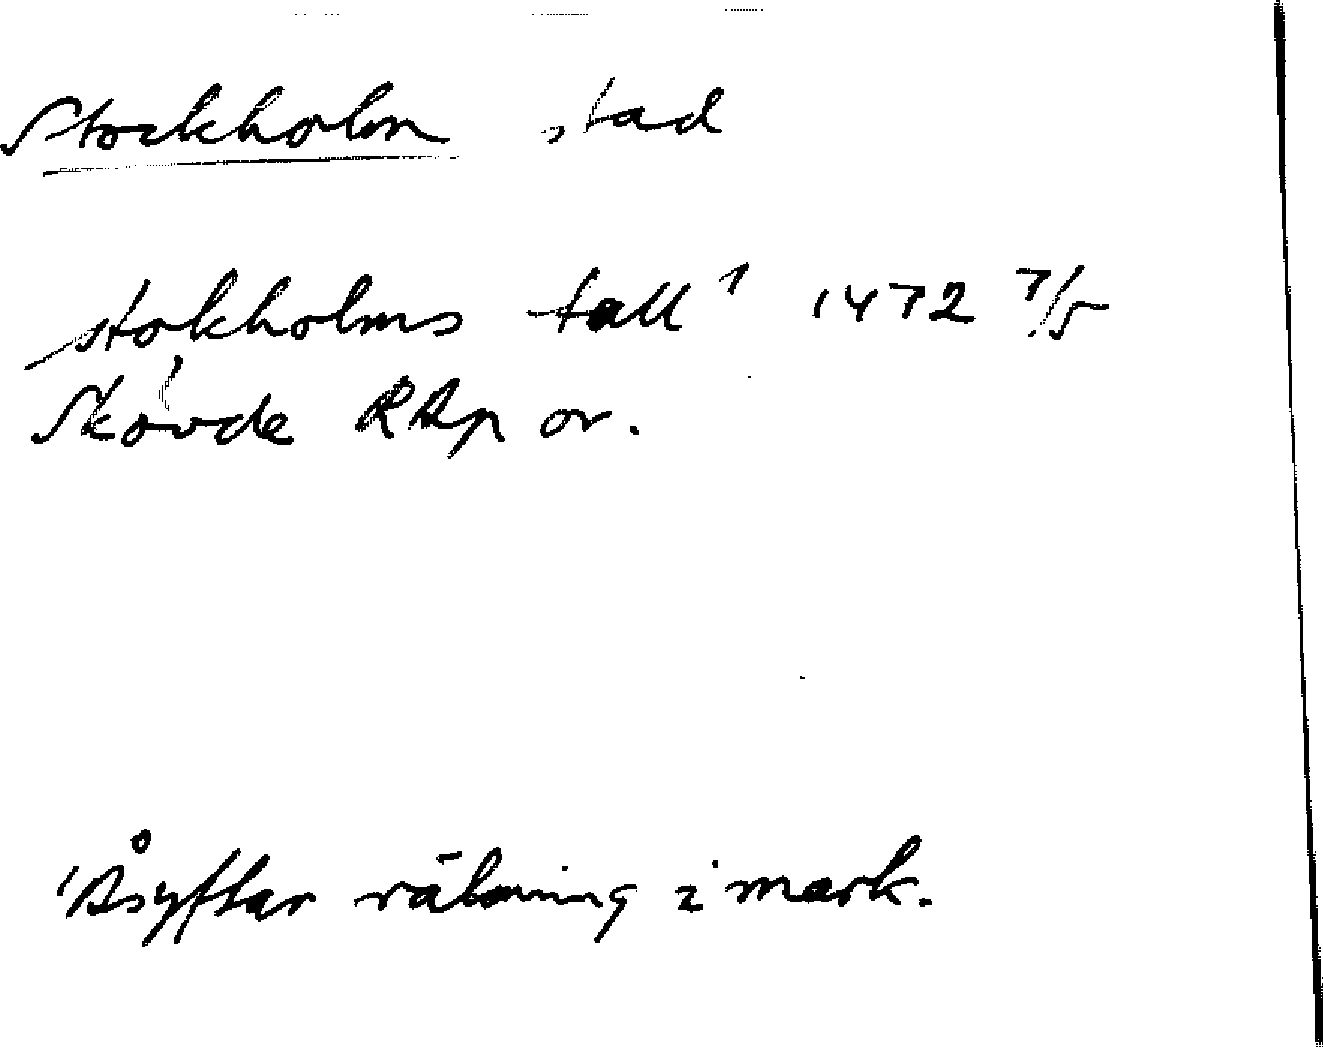 Stockholm stad
stokholms tall¹ 1472 7/5
Skövde RAp or.
¹Åsyftar räkning i mark.